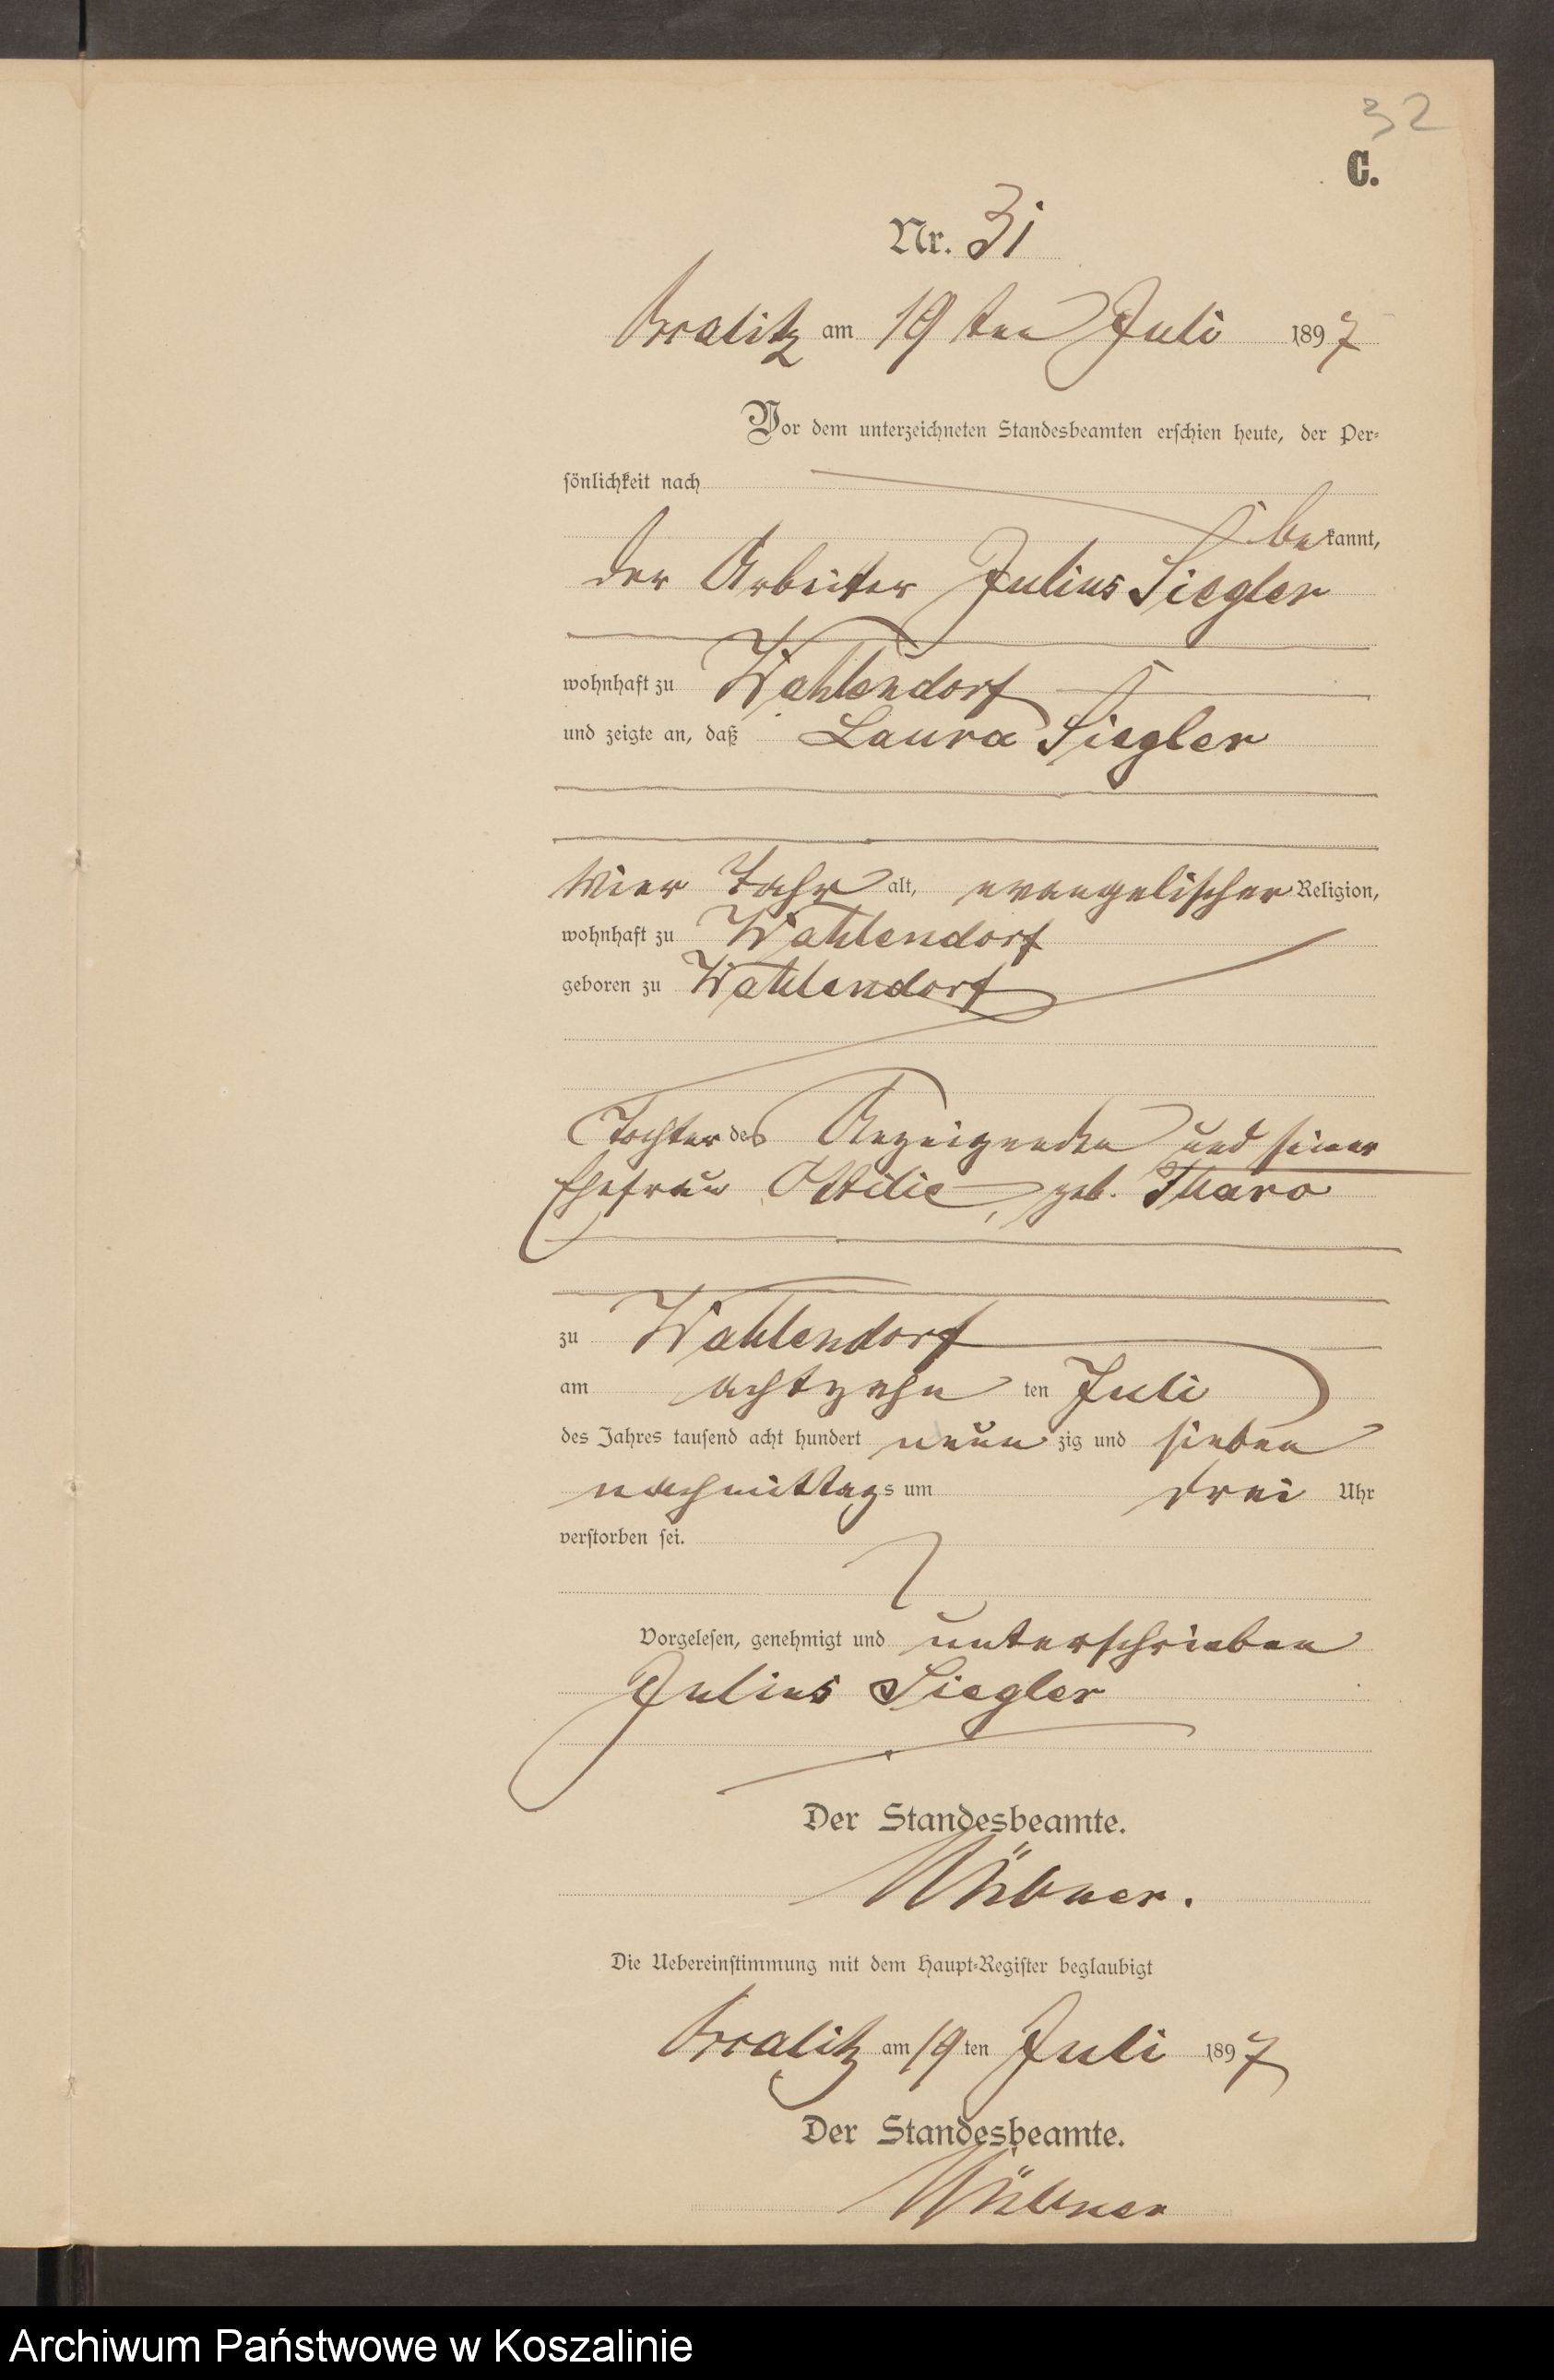 32
C.
Nr. 31
Wralitz am 19ten Juli 1897
Vor dem unterzeichneten Standesbeamten erschien heute, der Per-
sönlichkeit nach
bekannt,
der Arbeiter Julius Siegler
wohnhaft zu Wahlendorf
und zeigte an, daß Laura Siegler
Vier Jahr alt, evangelischer Religion,
wohnhaft zu Wahlendorf
geboren zu Wahlendorf
Tochter des Anzeigenden und seiner
Ehefrau Ottilie, geb. Maro
zu Wahlendorf
am achtzehn ten Juli
des Jahres tausend acht hundert neunzig und sieben
nachmittags um drei Uhr
verstorben sei.
Vorgelesen, genehmigt und unterschrieben
Julius Siegler
Der Standesbeamte.
Die Uebereinstimmung mit dem Haupt-Register beglaubigt
am 19ten Juli 1897
Der Standesbeamte.
Archiwum Państwowe w Koszalinie